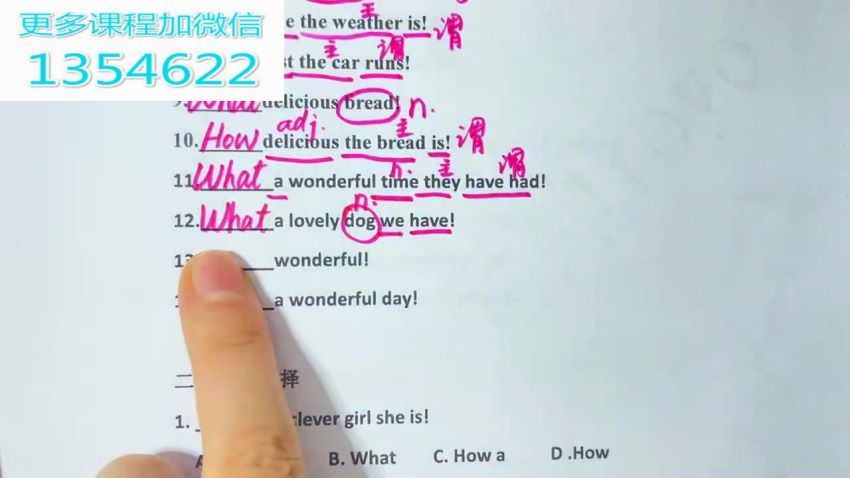 更多课程加微信
1354622
the weather is! 主 谓
the car runs! 主 谓
9. What delicious bread! n.
10. How delicious the bread is! adj. 主 谓
11 What a wonderful time they have had! n. 主 谓
12. What a lovely dog we have! n.
wonderful!
a wonderful day!
二 择
1. clever girl she is!
B. What C. How a D .How